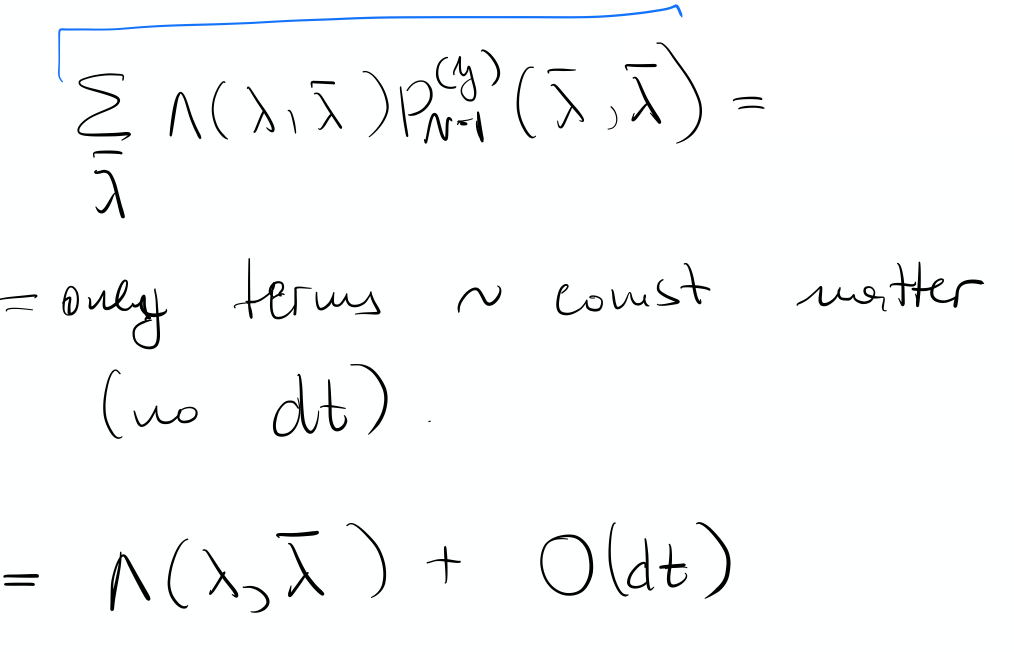 ∑ Λ(λ, λ̄) P_{N-1}^{(y)} (λ̄, λ̄) =
λ̄
= only terms ~ const matter
(no dt).
= Λ(λ, λ̄) + O(dt)